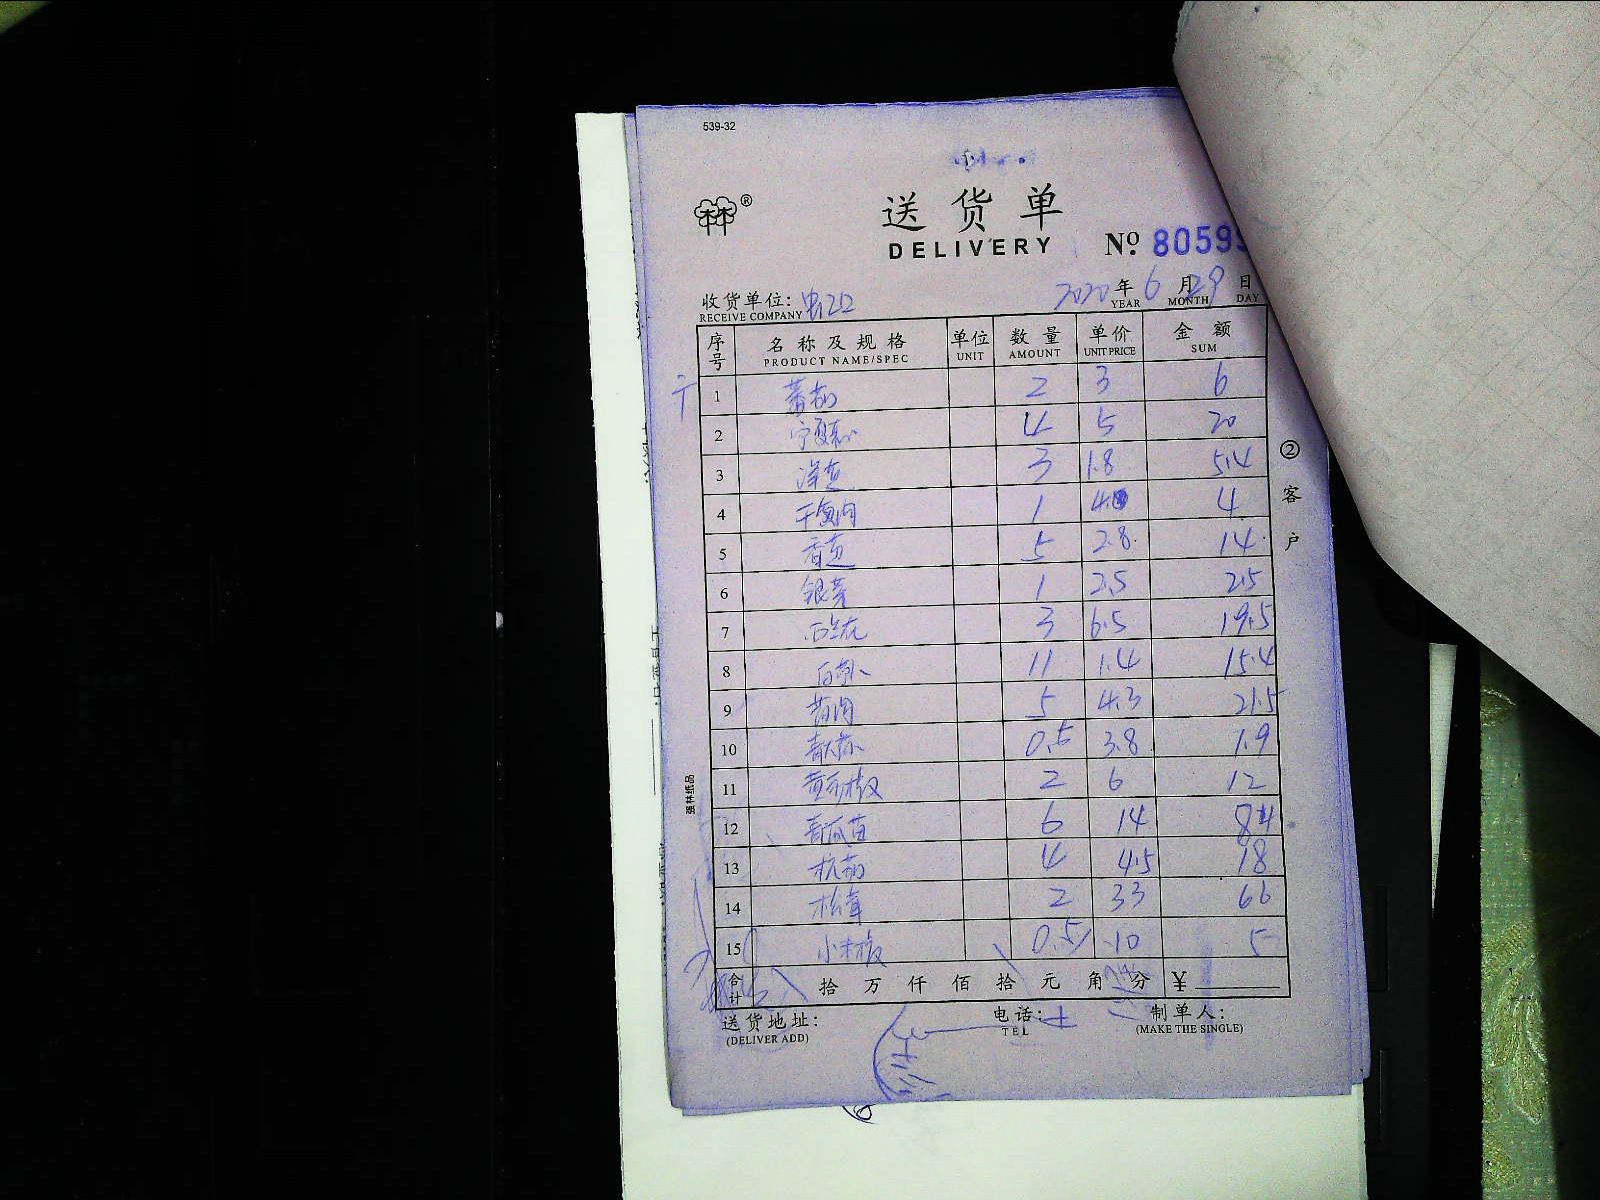 539-32
林®
送货单
DELIVERY
№ 8059
2020年 6月 29日
YEAR MONTH DAY
收货单位:
RECEIVE COMPANY
序号 名称及规格 单位 数量 单价 金额
PRODUCT NAME/SPEC UNIT AMOUNT UNIT PRICE SUM
1 蕃茄 2 3 6
2 宁夏菜心 4 5 20
3 洋葱 3 1.8 5.4
4 1 4 4
5 香芹 5 2.8 14
6 银芽 1 2.5 2.5
7 西兰花 3 6.5 19.5
8 白萝卜 11 1.4 15.4
9 5 4.3 21.5
10 0.5 3.8 1.9
11 黄彩椒 2 6 12
12 青瓜苗 6 14 84
13 杭茄 4 4.5 18
14 松茸 2 33 66
15 0.5 10 5
合计 拾 万 仟 佰 拾 元 角 分 ¥
送货地址: 电话: 制单人:
(DELIVER ADD) TEL (MAKE THE SINGLE)
②客户
强林纸品